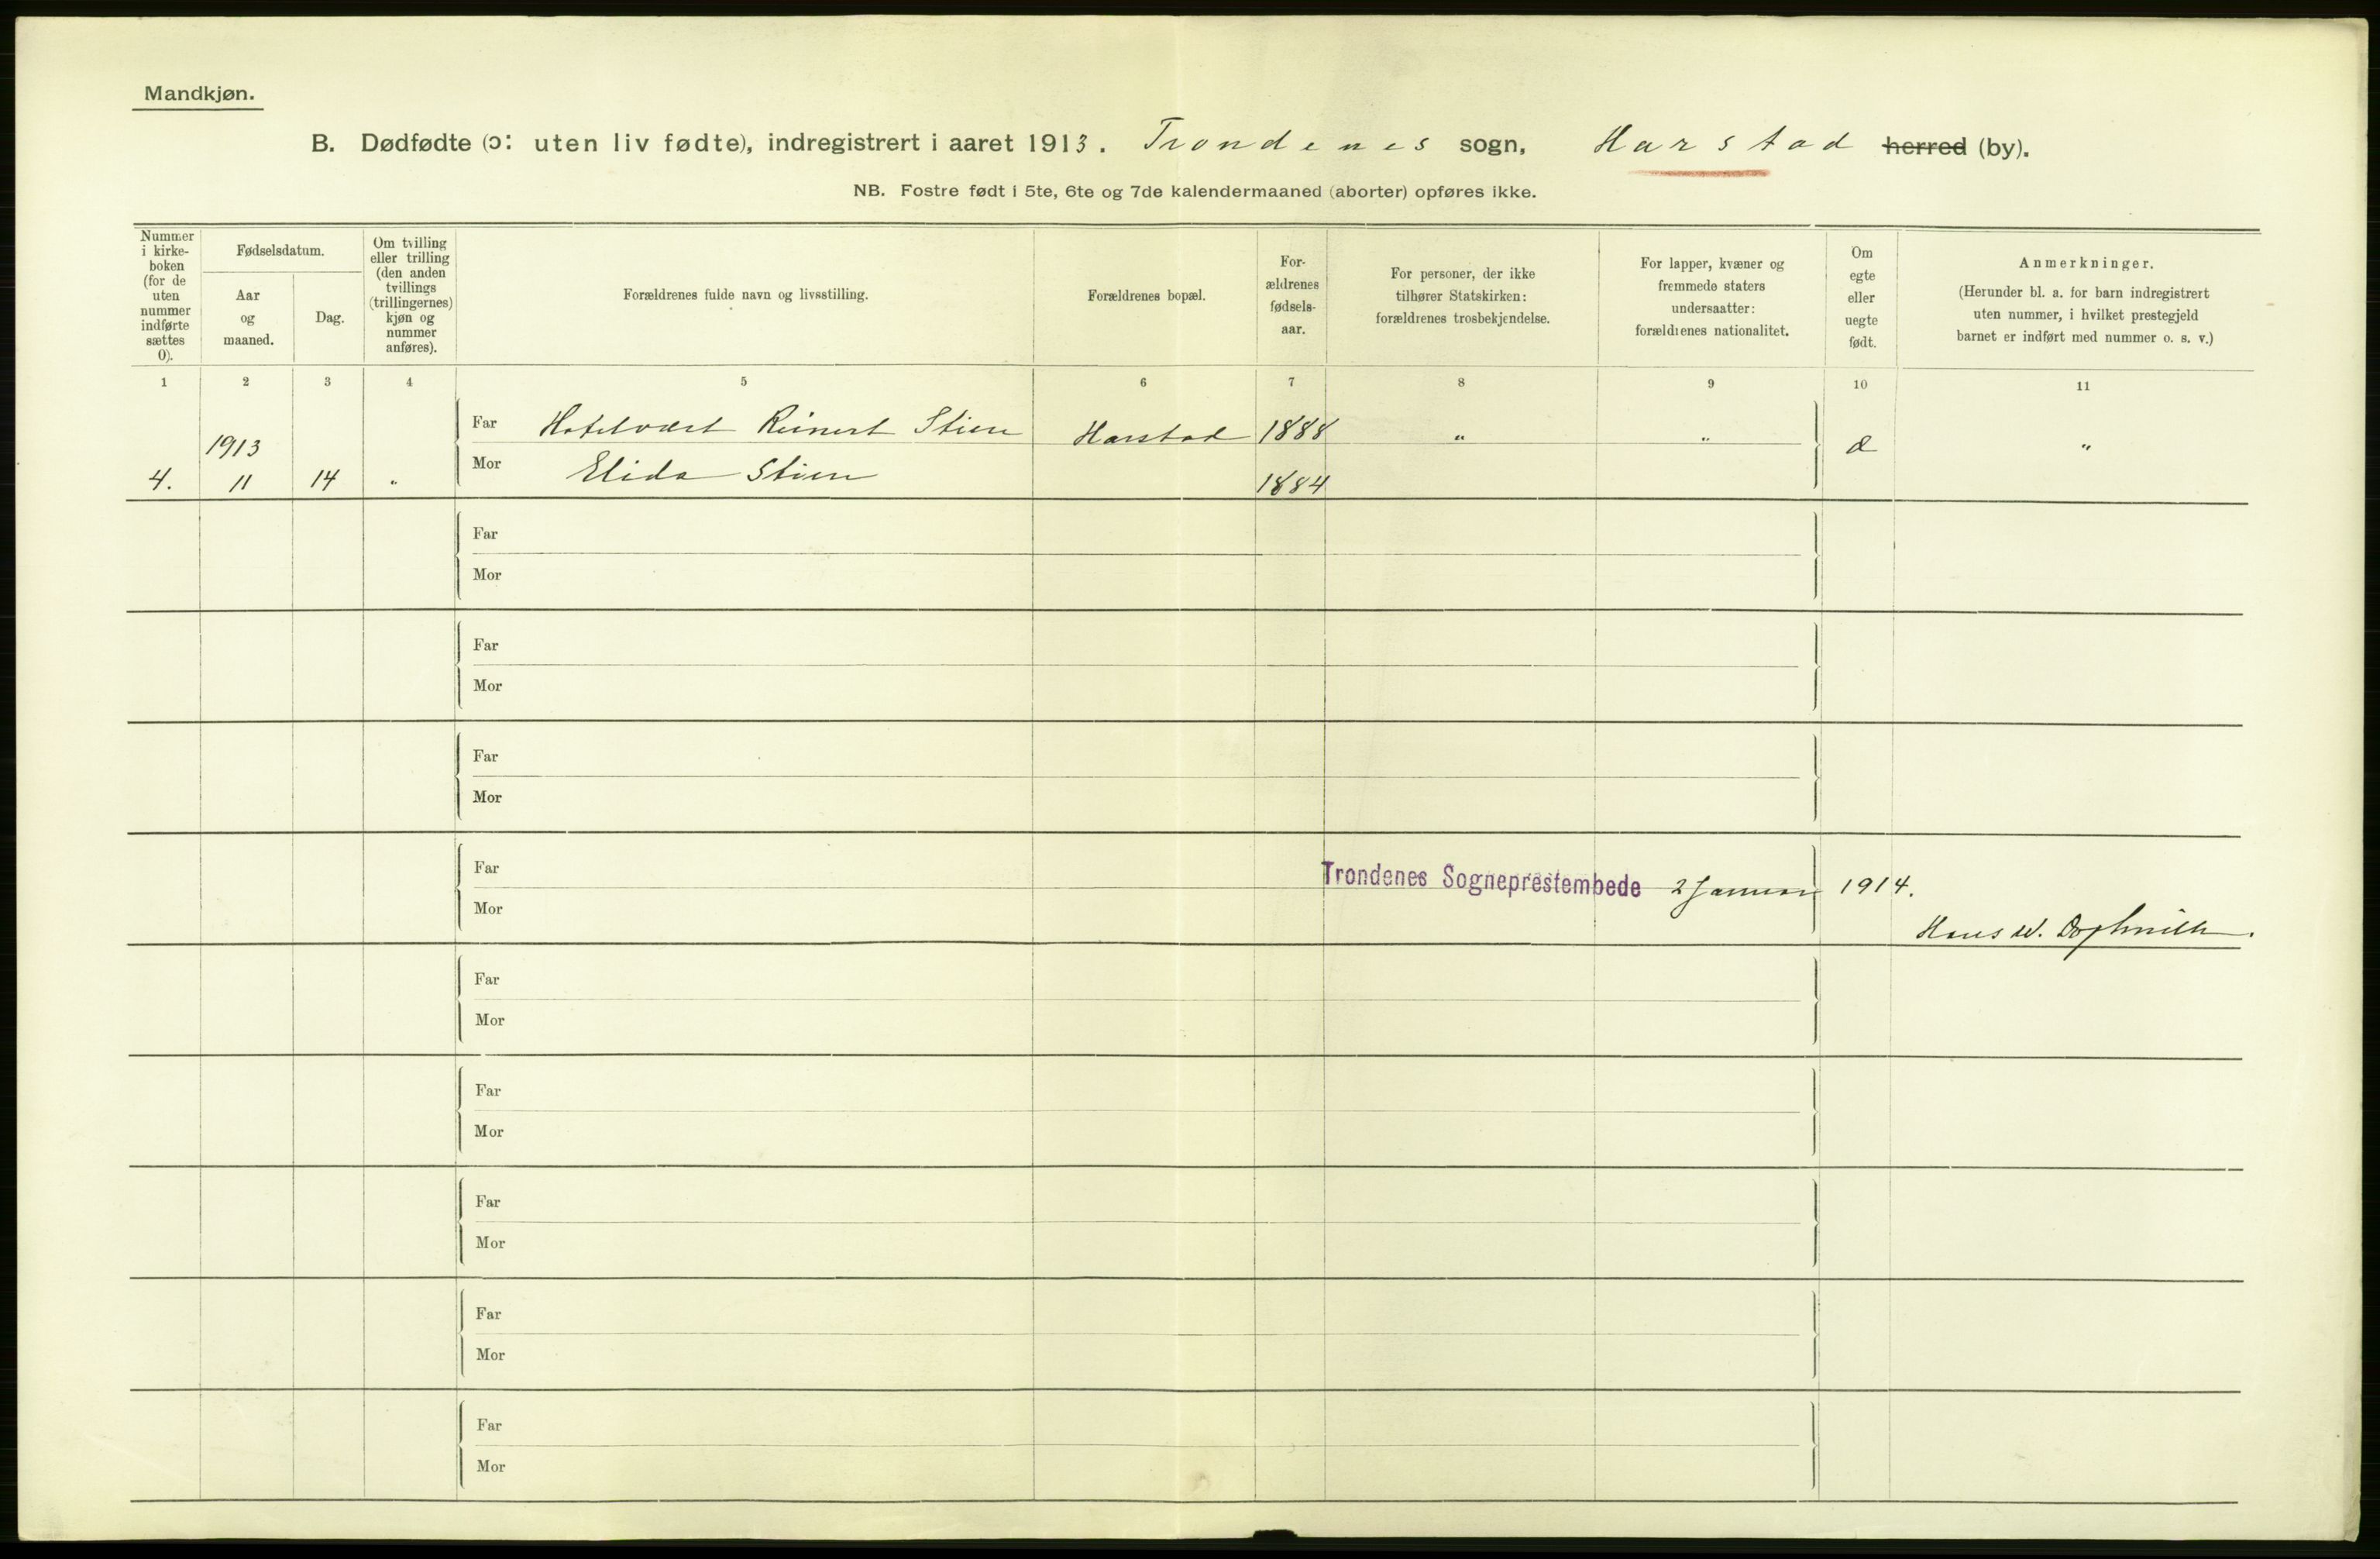 Mandkjøn.
B. Dødfødte (ɔ: uten liv fødte), indregistrert i aaret 1913. Trondenes sogn, Harstad herred (by).
NB. Fostre født i 5te, 6te og 7de kalendermaaned (aborter) opføres ikke.
Nummer
i kirke-
boken
(for de
uten
nummer
indførte
sættes
0).
Fødselsdatum.
Aar
og
maaned.
Dag.
Om tvilling
eller trilling
(den anden
tvillings
(trillingernes)
kjøn og
nummer
anføres).
Forældrenes fulde navn og livsstilling.
Forældrenes bopæl.
For-
ældrenes
fødsels-
aar.
For personer, der ikke
tilhører Statskirken:
forældrenes trosbekjendelse.
For lapper, kvæner og
fremmede staters
undersaatter:
forældrenes nationalitet.
Om
egte
eller
uegte
født.
Anmerkninger.
(Herunder bl. a. for barn indregistrert
uten nummer, i hvilket prestegjeld
barnet er indført med nummer o. s. v.)
1 2 3 4 5 6 7 8 9 10 11
Far Hotelvært Reinert Stien Harstad 1888 " "
1913 æ "
Mor Elida Stien 1884
4. 11 14 "
Far
Mor
Far
Mor
Far
Mor
Far
Trondenes Sogneprestembede 2 Januar 1914.
Mor
Hans
Far
Mor
Far
Mor
Far
Mor
Far
Mor
Far
Mor